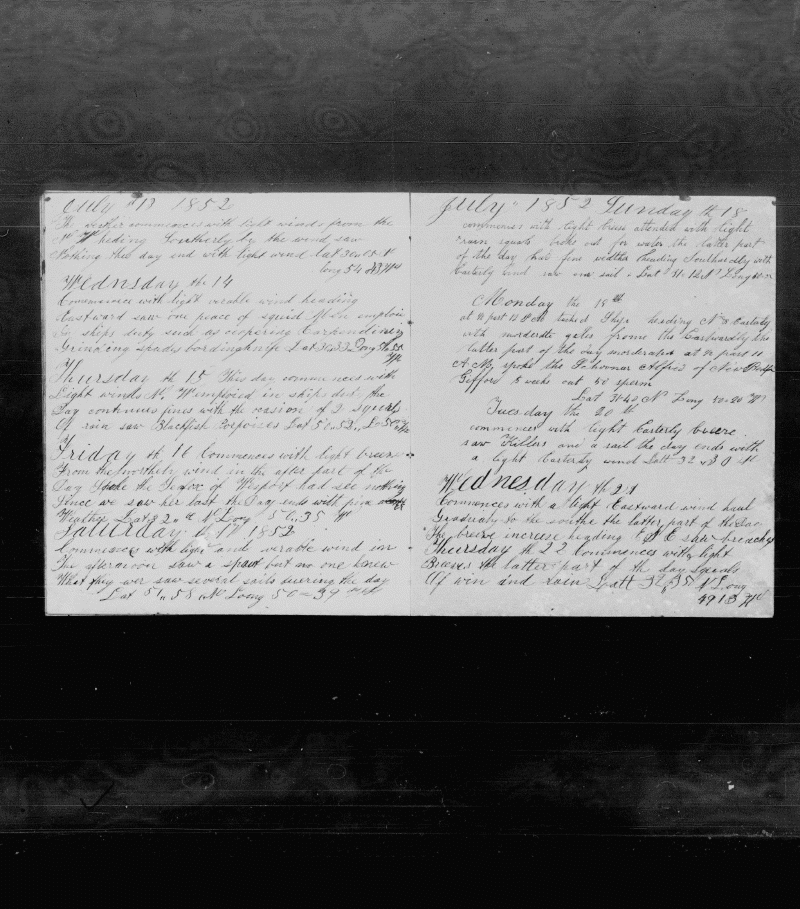 July th 13 1852
The wether commences with light winds from the
heding Southerly by the wind saw
Nothing this day end with light wind Lat 30
Long 54
Wednsday the 14
Commences with light verable wind heading
Eastward saw one peace of squid
in ships duty such as coopering
Grinding spades bordingknife Lat Long
Thursday th 15 This day commences with
Light winds N W imploied in ships dut the
Day continues fine with the ocasion of 2 squals
Of rain saw Blackfish Porpoises Lat Lo
Friday th 16 Commences with light breese
From the northely wind in the after part of the
Day the of Wesport had see nothing
Since we saw her last the Day ends with fine
Weather Lat 32 N Long 50 35 W
Saturday th 17 1852
Commences with light and verable wind in
The afternoon saw a spout but no one knew
What they wer saw several sails during the day
Lat 51 58 N Loong 50 = 39 West
July 1852 Sunday th 18
commences with light breese attended with light
rain squals look out for water the latter part
of the day had fine wether heading Southardly with
Easterly wind saw one sail Lat 31 12 N Long
Monday the 19th
at ½ part 12 P M tacked Ship heading N & Easterly
with moderate gales from the Eastwardly the
latter part of the day moderate at ½ past 11
A M spoke the of New
Gifford 8 weeks out 50 sperm
Lat 31 42 N Long W
Tuesday the 20th
commences with light Easterly breeze
saw Killers and a sail the day ends with
a light Easterly wind Latt 32 " 30 N
Wednesday th 21
Commences with a light Eastward wind haul
Gradualy to the southe the latter part of this day
The breeze increase heading E S E saw breach
Thursday th 22 Commences with light
Breeses the latter part of the day squals
Of win and rain Latt 32 35 N Long
49 13 Wt